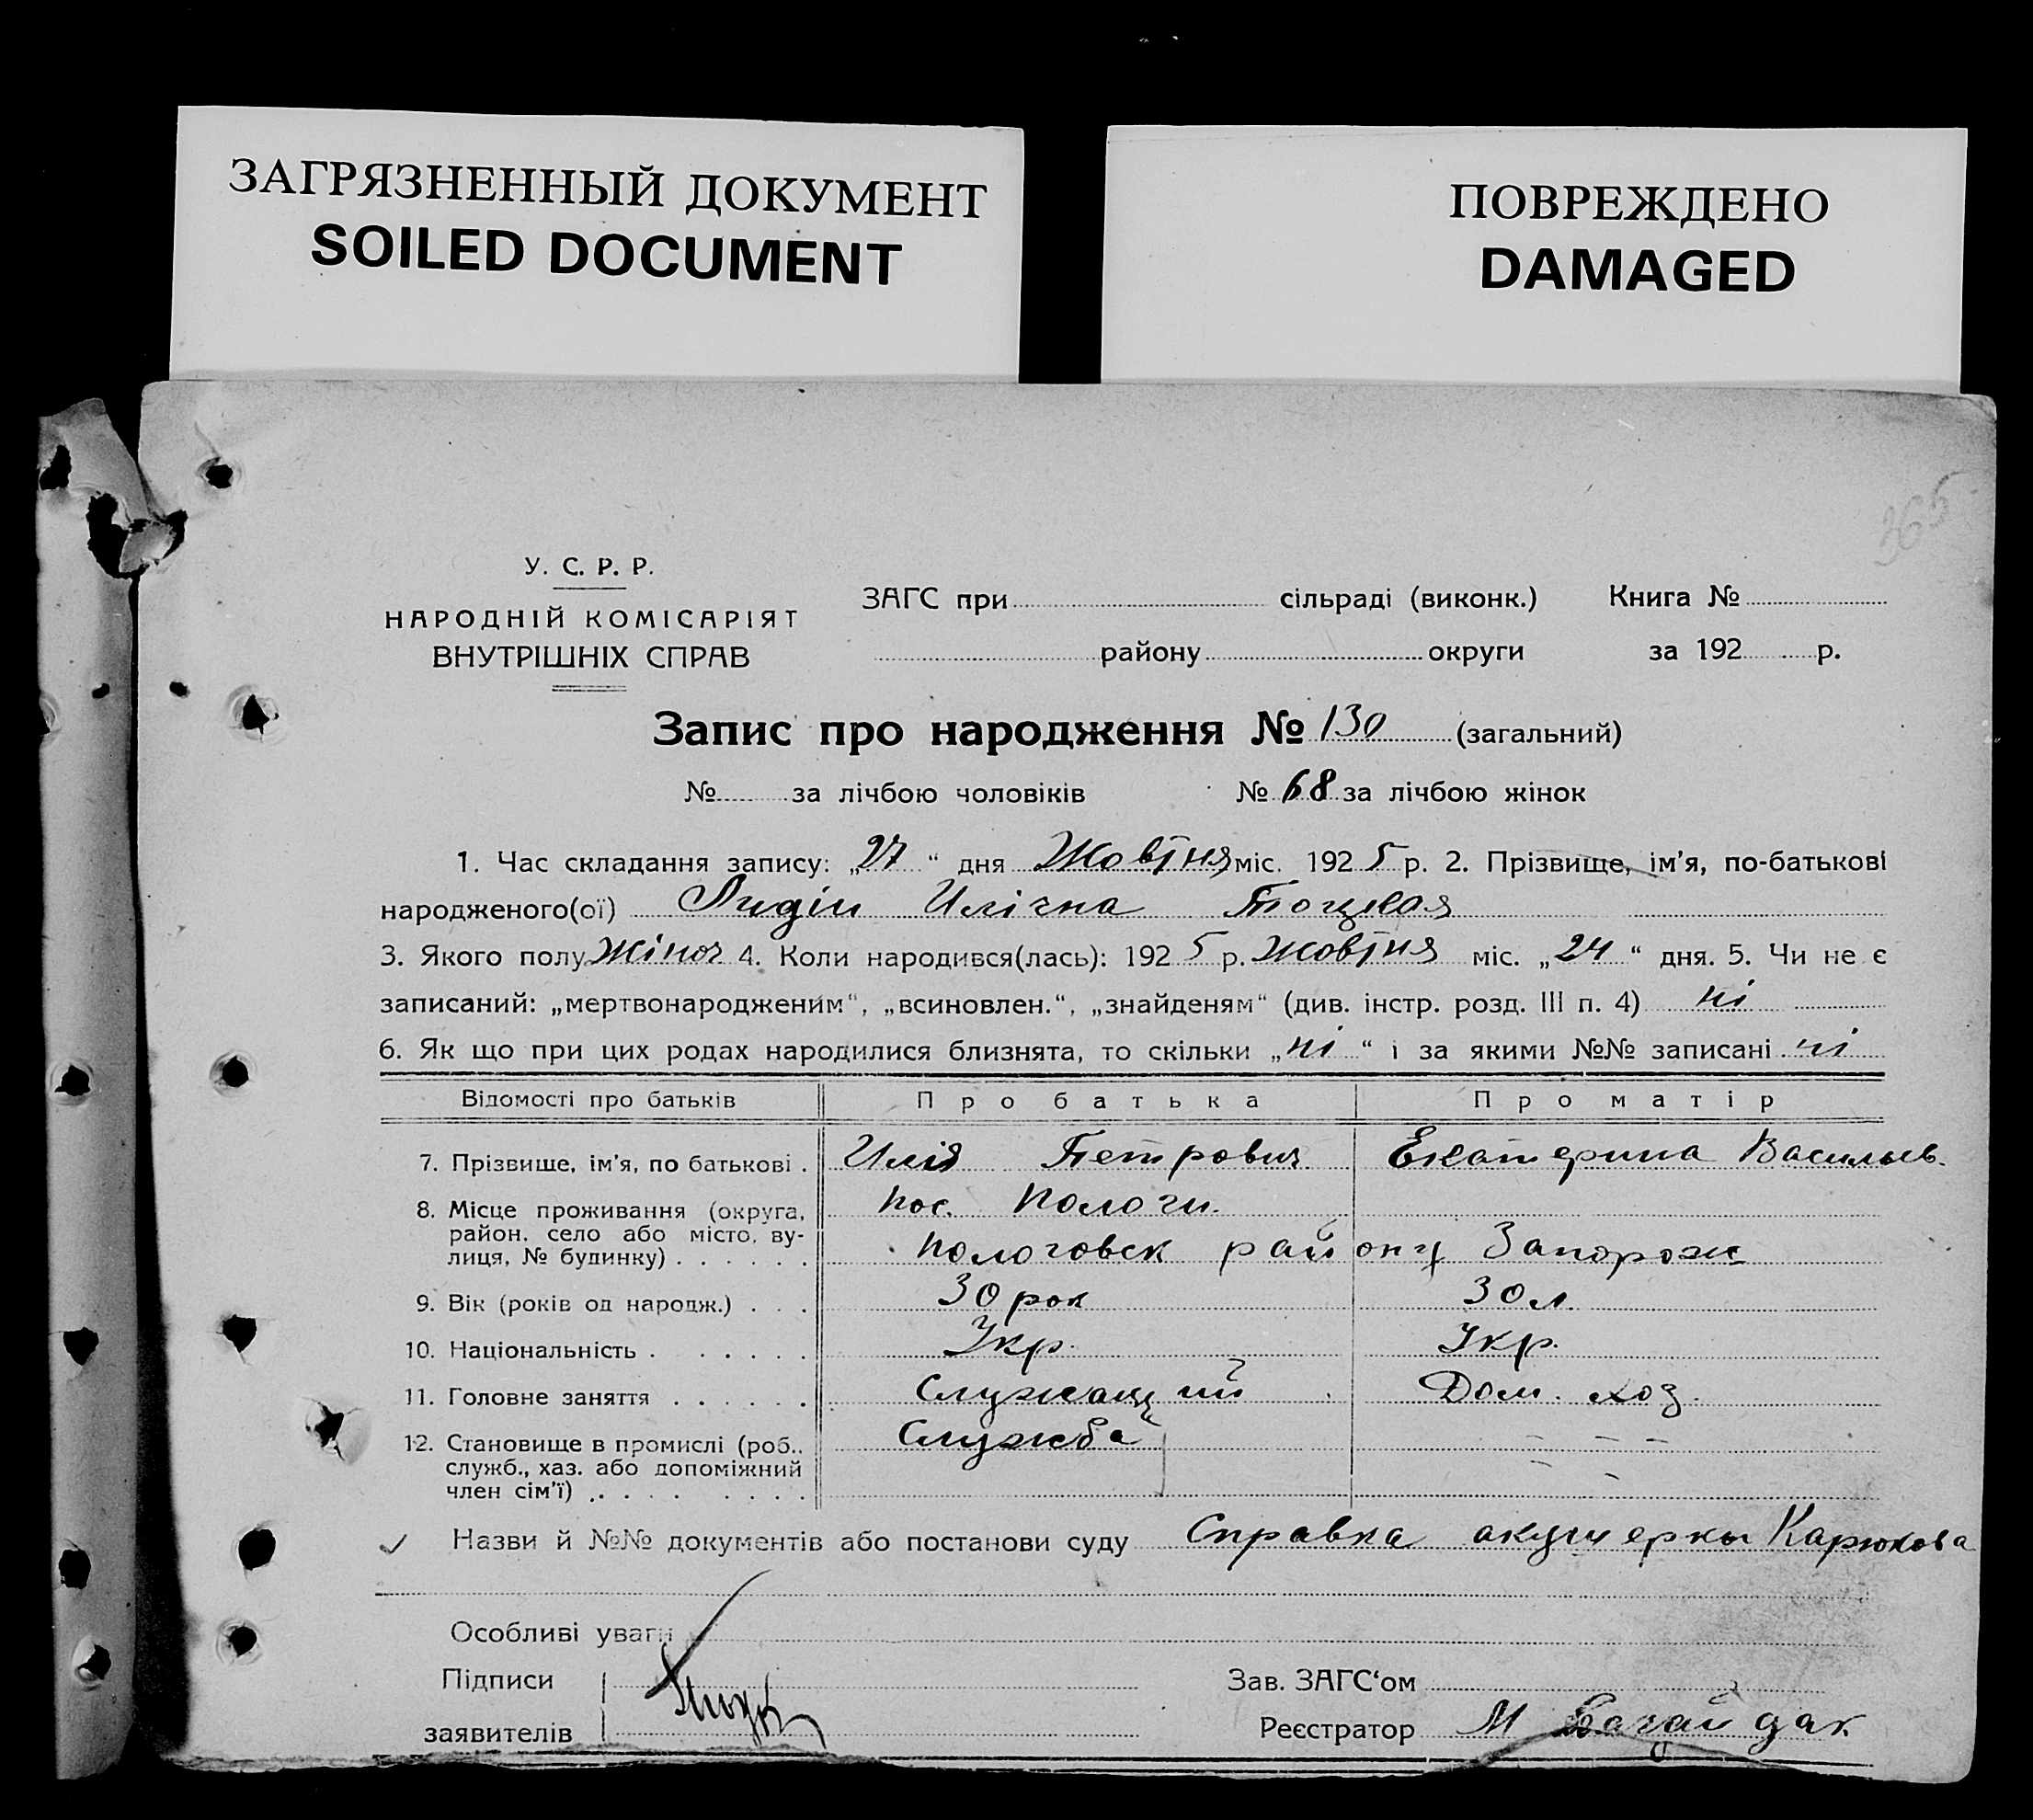 ЗАГРЯЗНЕННЫЙ ДОКУМЕНТ
SOILED DOCUMENT
ПОВРЕЖДЕНО
DAMAGED
365
У. С. Р. Р.
НАРОДНІЙ КОМІСАРІЯТ
ВНУТРІШНІХ СПРАВ
ЗАГС при сільраді (виконк.) Книга №
району округи за 192 р.
Запис про народження № 130 (загальний)
№ за лічбою чоловіків № 68 за лічбою жінок
1. Час складання запису: „27“ дня Жовтня міс. 1925 р. 2. Прізвище, ім'я, по-батькові
народженого(ої) Лидія Илічна Тоцевая
3. Якого полу Жіноч 4. Коли народився(лась): 1925 р. Жовтня міс. „24“ дня. 5. Чи не є
записаний: „мертвонародженим“, „всиновлен.“, „знайденям“ (див. інстр. розд. III п. 4) ні
6. Як що при цих родах народилися близнята, то скільки „ні“ і за якими №№ записані ні
Відомості про батьків Про батька Про матір
7. Прізвище, ім'я, по батькові . Илія Петрович Екатерина Васильев.
8. Місце проживання (округа, пос. Пологи.
район. село або місто, ву-
лиця, № будинку) . . . . . . Пологовск району Запорож
9. Вік (років од народж.) . . . 30 рок 30 л.
10. Національність . . . . . . Укр. Укр.
11. Головне заняття . . . . . . Служащий Дом. хоз.
12. Становище в промислі (роб.. Служба - - -
служб., хаз. або допоміжний
член сім'ї) . . . . . . . .
Назви й №№ документів або постанови суду Справка акушерки Карюкова
Особливі уваги
Підписи Зав. ЗАГС‘ом
заявителів Реєстратор М